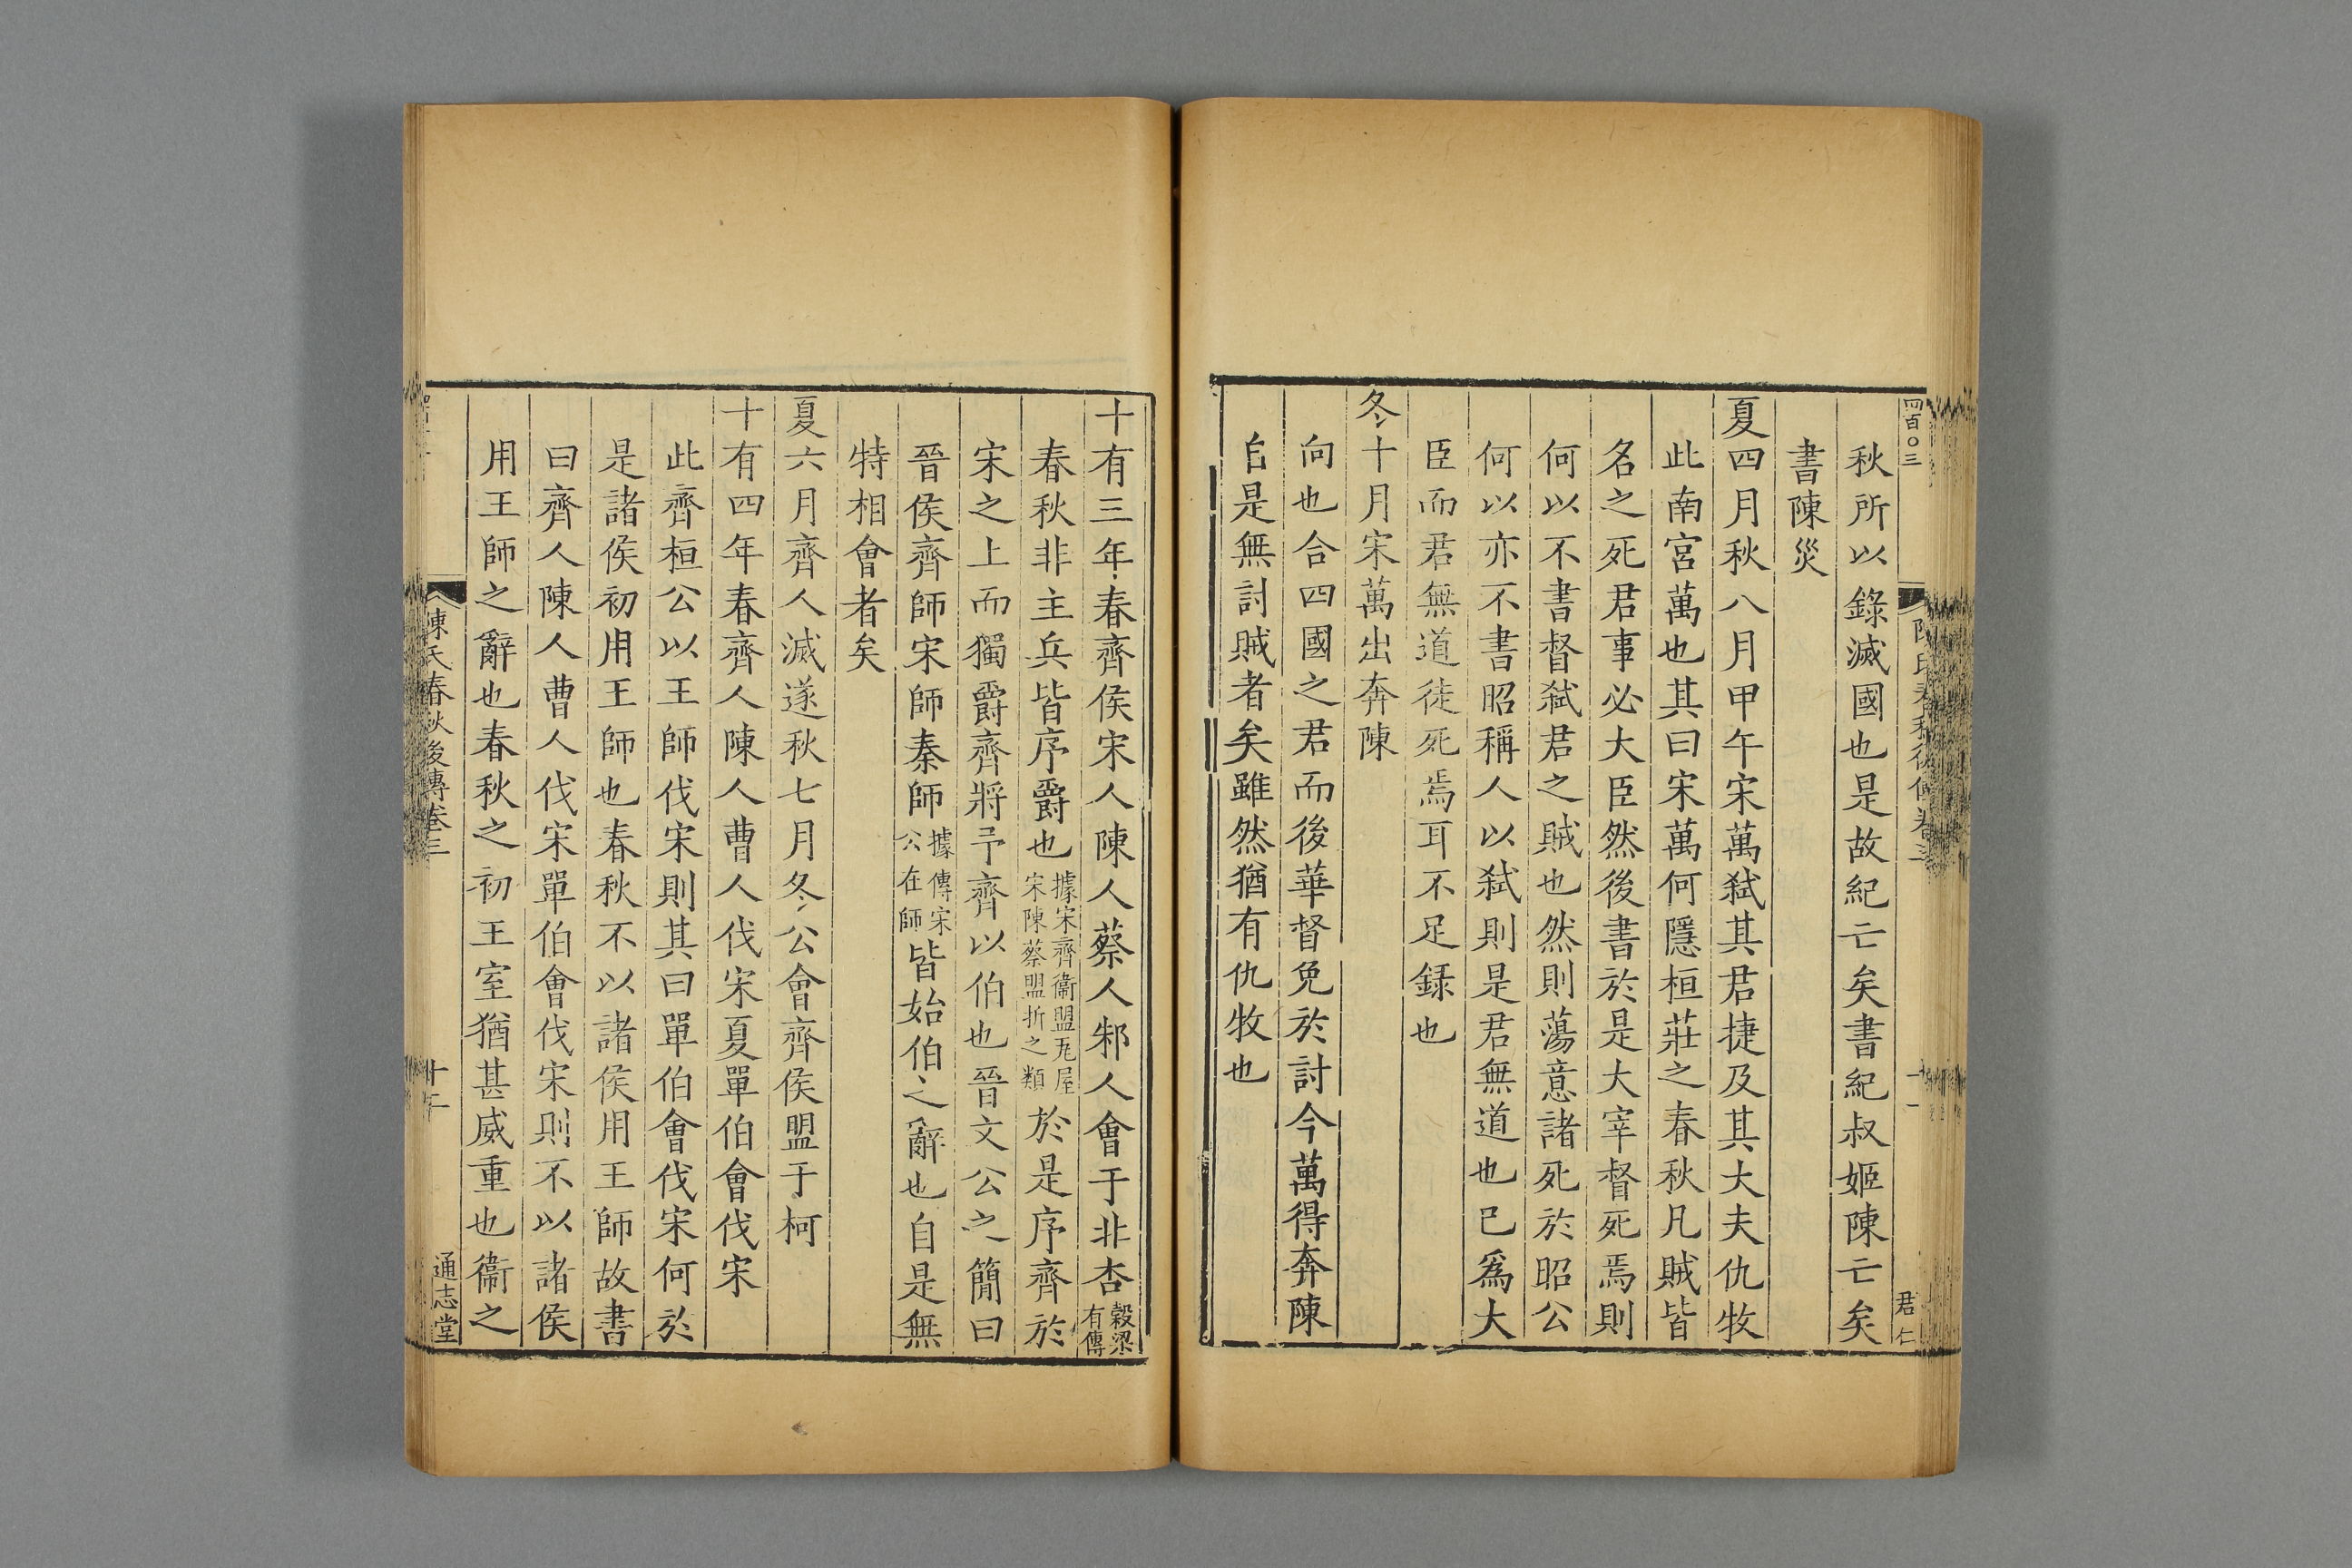 四百〇三
君仁
秋所以錄滅國也是故紀亡矣書紀叔姬陳亡矣
書陳災
夏四月秋八月甲午宋萬弒其君捷及其大夫仇牧
此南宮萬也其曰宋萬何隱桓莊之春秋凡賊皆
名之死君事必大臣然後書於是大宰督死焉則
何以不書督弒君之賊也然則蕩意諸死於昭公
何以亦不書昭稱人以弒則是君無道也已爲大
臣而君無道徒死焉耳不足録也
冬十月宋萬出奔陳
向也合四國之君而後華督免於討今萬得奔陳
自是無討賊者矣雖然猶有仇牧也
十有三年春齊侯宋人陳人蔡人邾人會于非杏穀梁有傳
春秋非主兵皆序爵也據宋齊衞盟瓦屋宋陳蔡盟折之類於是序齊於
宋之上而獨爵齊將予齊以伯也晉文公之簡曰
晉侯齊師宋師秦師據傳宋公在師皆始伯之辭也自是無
特相會者矣
夏六月齊人滅遂秋七月冬公會齊侯盟于柯
十有四年春齊人陳人曹人伐宋夏單伯會伐宋
此齊桓公以王師伐宋則其曰單伯會伐宋何於
是諸侯初用王師也春秋不以諸侯用王師故書
曰齊人陳人曹人伐宋單伯會伐宋則不以諸侯
用王師之辭也春秋之初王室猶甚威重也衞之
陳氏春秋後傳卷三
十二
通志堂